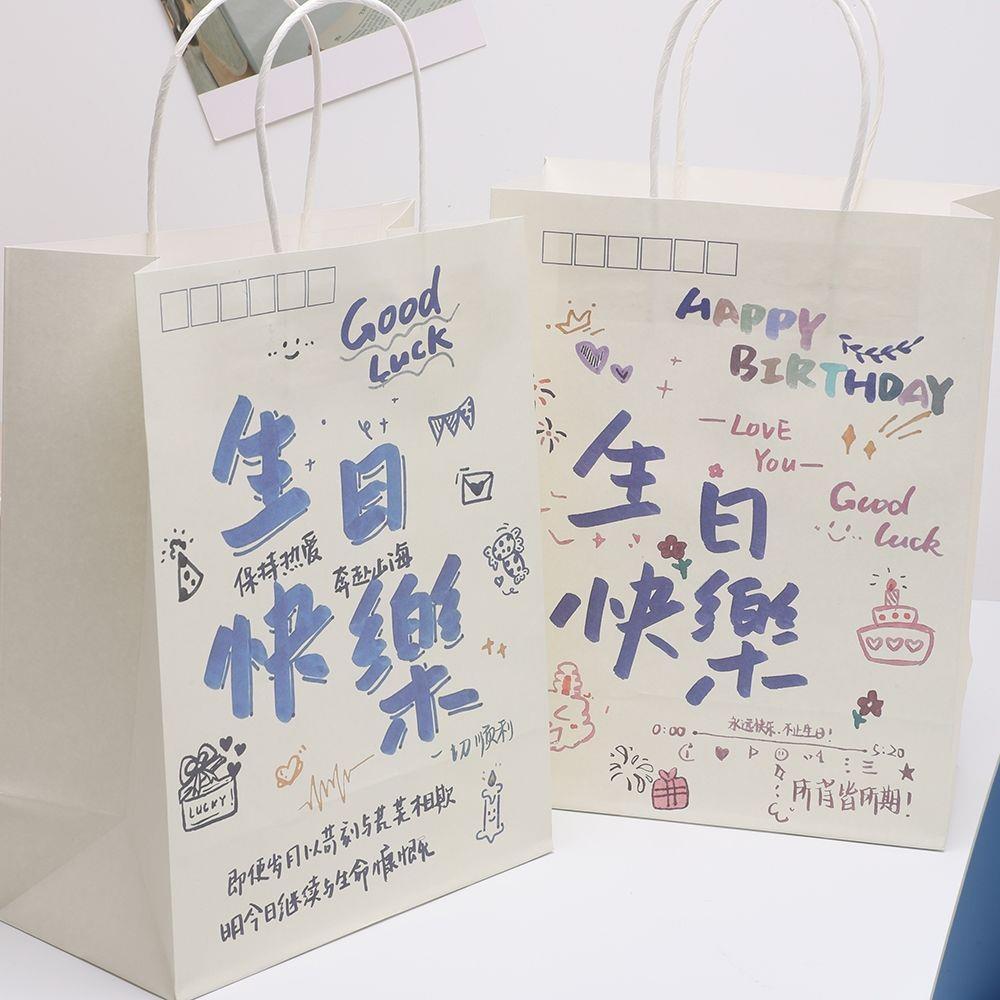 Good
Luck
生日
保持热爱 奔赴山海
快樂
一切顺利
LUCKY!
即便岁月以苛刻与荒芜相欺
明今日继续与生命慷慨
HAPPY
BIRTHDAY
LOVE
You
生日
Good
Luck
快樂
永远快乐,不止生日!
0:00
5:20
所肖皆所期!